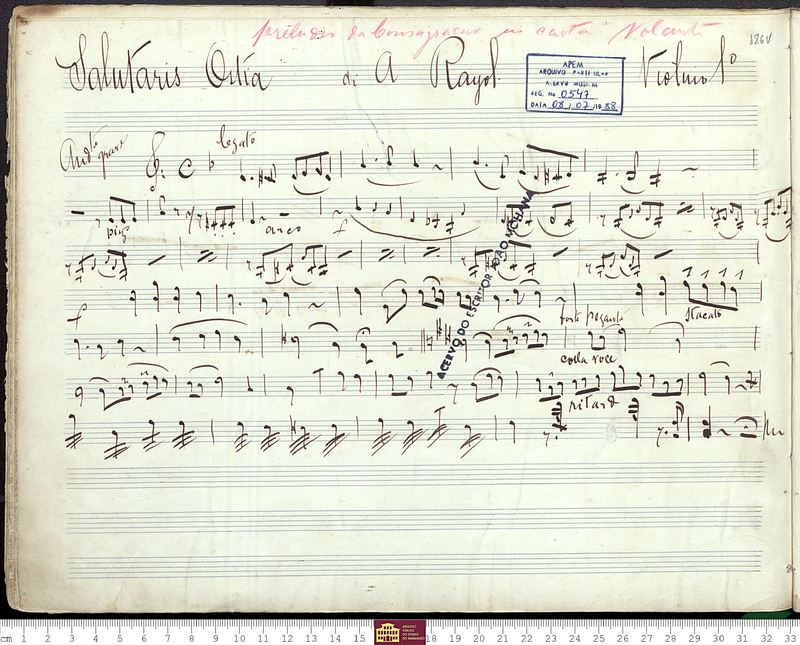 preludio da Consagração em carta Volante
186V
Salutaris Ostia di A Rayol. Violino 1º
APEM
ARQUIVO PARTICULAR
ACERVO MUSICAL
REG. No 0547
DATA 08/07/1988
Andte grave C legato
piz arco f
ACERVO DO ESCRITOR JOÃO MOHANA
f Stacato
forte pezante
colla voce
ritard
cm 1 2 3 4 5 6 7 8 9 10 11 12 13 14 15 18 19 20 21 22 23 24 25 26 27 28 29 30 31 32 33
ARQUIVO PÚBLICO DO ESTADO DO MARANHÃO